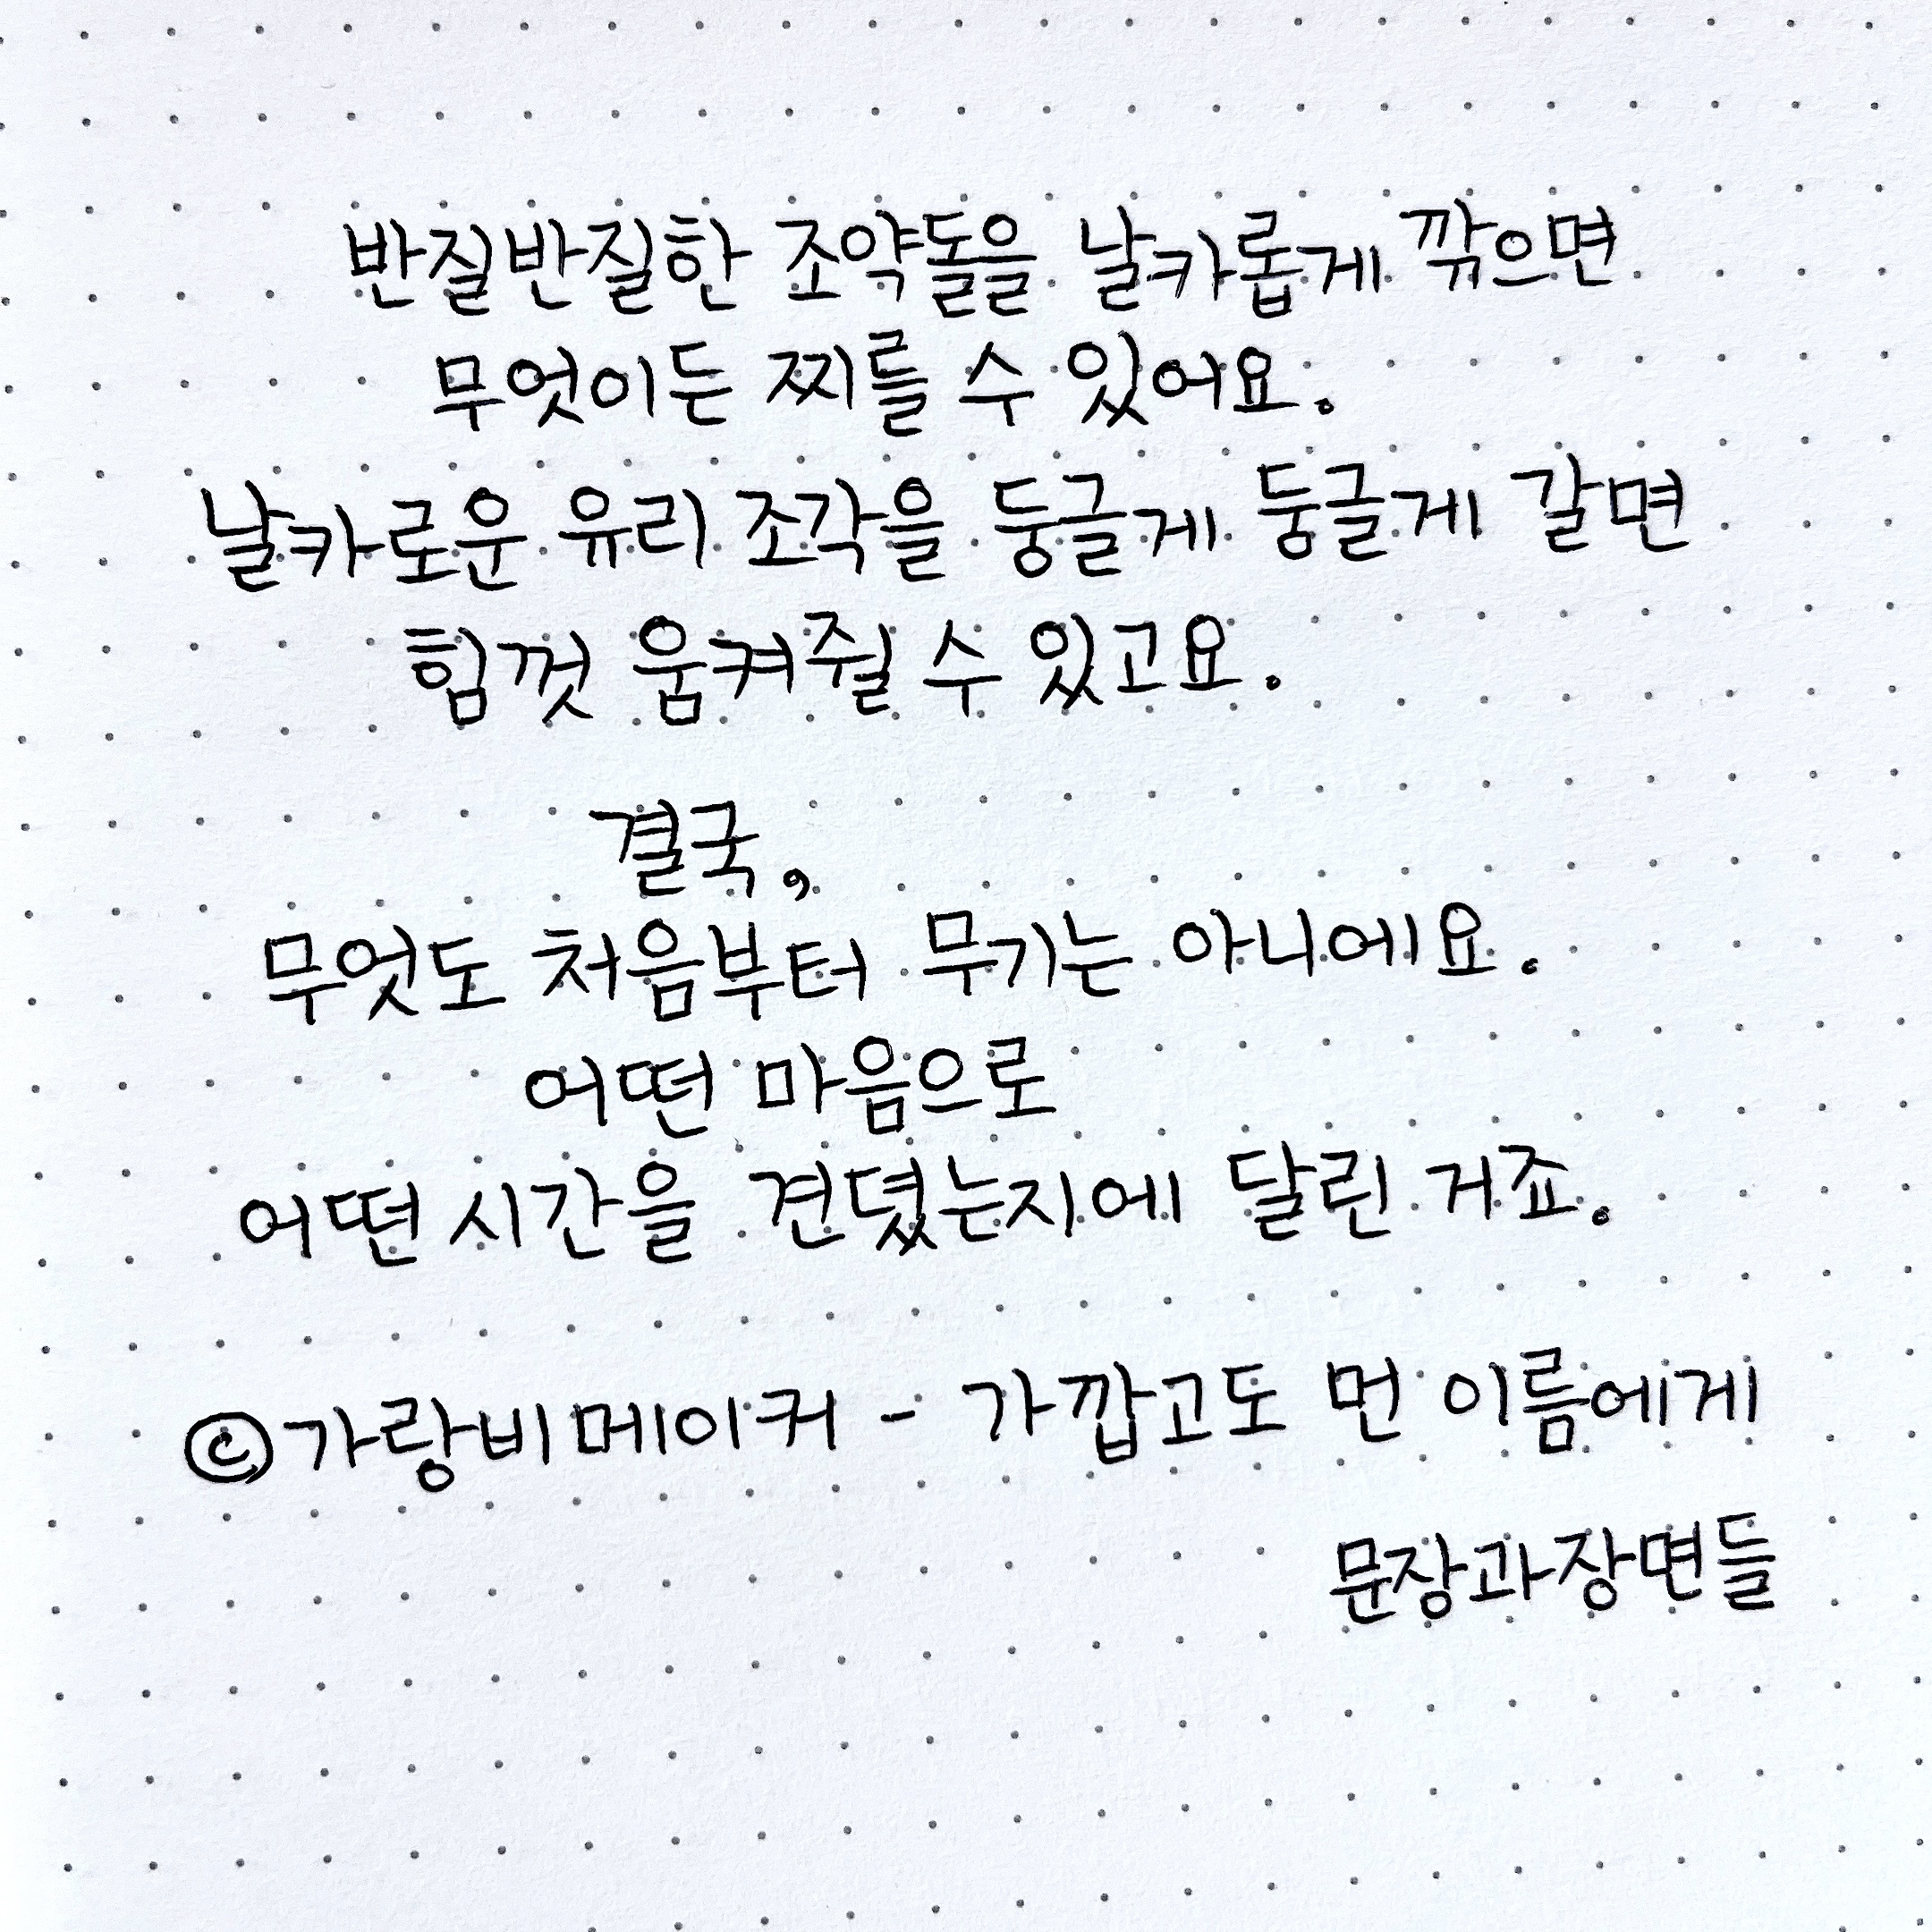 반질반질한 조약돌을 날카롭게 깎으면
무엇이든 찌를 수 있어요.
날카로운 유리 조각을 둥글게 둥글게 갈면
힘껏 움켜쥘 수 있고요.
결국,
무엇도 처음부터 무기는 아니에요.
어떤 마음으로
어떤 시간을 견뎠는지에 달린 거죠.
©가랑비메이커 - 가깝고도 먼 이름에게
문장과장면들